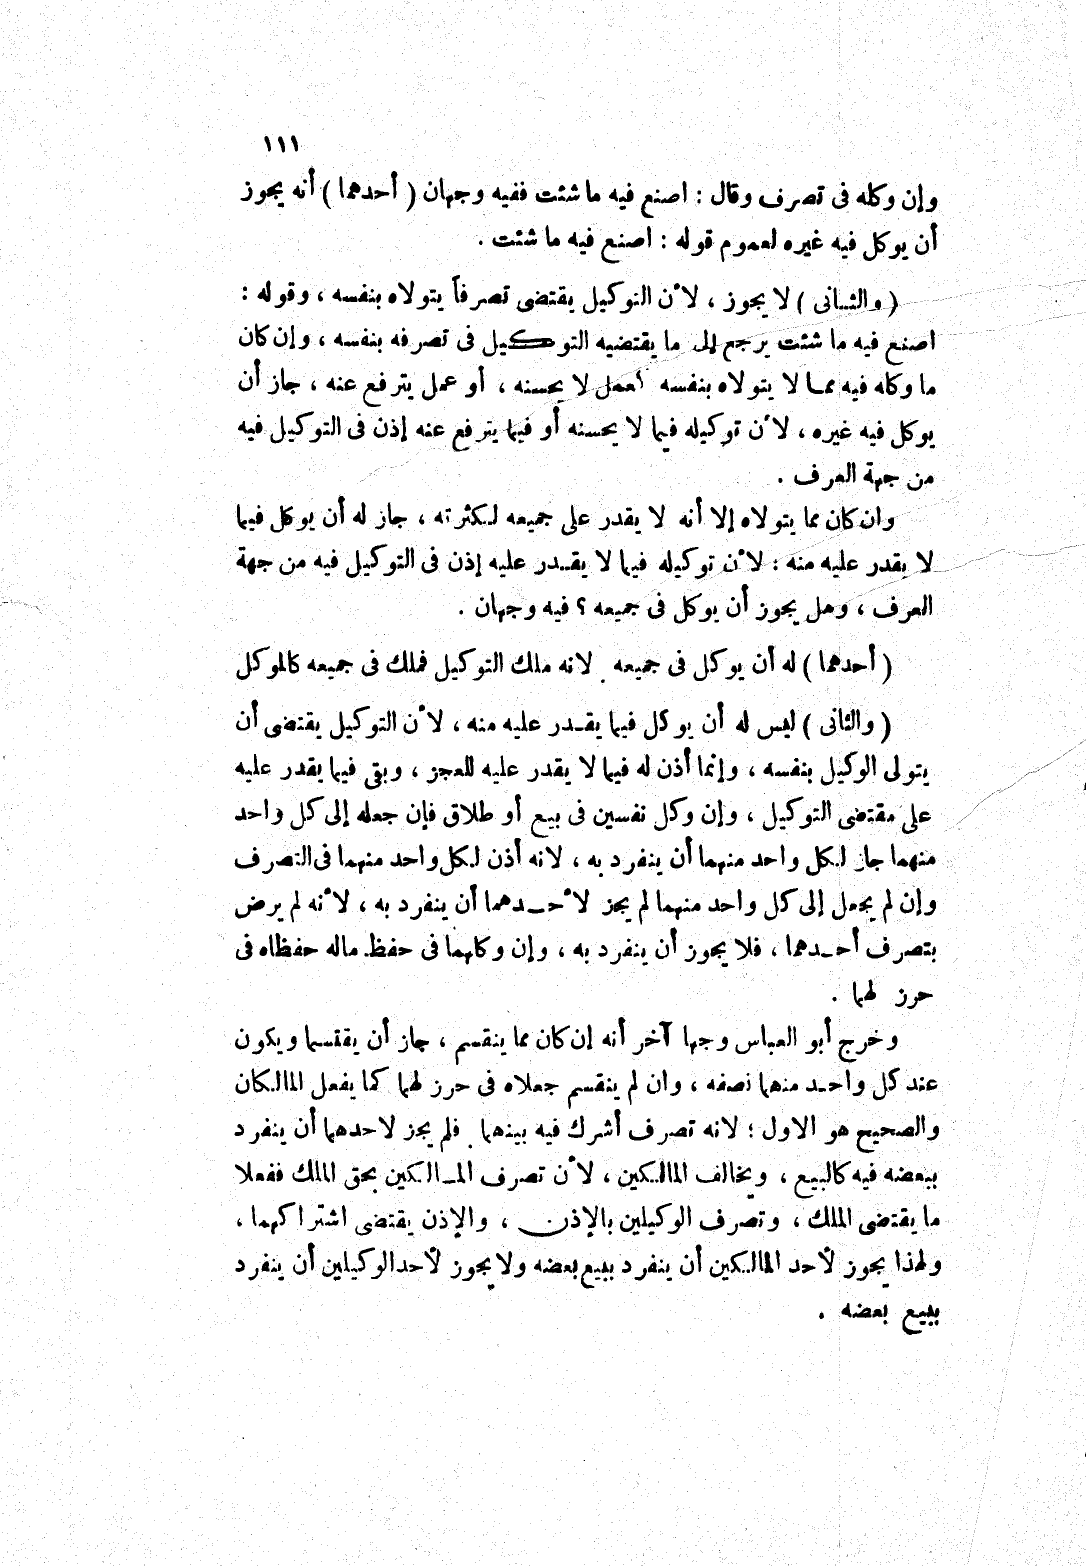 ١١١
وإن وكله فى تصرف وقال : اصنع فيه ما شئت ففيه وجهان ( أحدهما ) أنه يجوز
أن يوكل فيه غيره لعموم قوله : اصنع فيه ما شئت .
( والثانى ) لا يجوز ، لأن التوكيل يقتضى تصرفاً يتولاه بنفسه ، وقوله :
اصنع فيه ما شئت يرجع إلى ما يقتضيه التوكيل فى تصرفه بنفسه ، وإن كان
ما وكله فيه مما لا يتولاه بنفسه لعمل لا يحسنه ، أو عمل يترفع عنه ، جاز أن
يوكل فيه غيره ، لأن توكيله فيما لا يحسنه أو فيما يترفع عنه إذن فى التوكيل فيه
من جهة العرف .
وان كان مما يتولاه إلا أنه لا يقدر على جميعه لكثرته ، جاز له أن يوكل فيما
لا يقدر عليه منه : لأن توكيله فيما لا يقدر عليه إذن فى التوكيل فيه من جهة
العرف ، وهل يجوز أن يوكل فى جميعه ؟ فيه وجهان .
( أحدهما ) له أن يوكل فى جميعه . لانه ملك التوكيل فملك فى جميعه كالموكل
( والثانى ) ليس له أن يوكل فيما يقدر عليه منه ، لأن التوكيل يقتضى أن
يتولى الوكيل بنفسه ، وإنما أذن له فيما لا يقدر عليه للعجز ، وبقى فيما يقدر عليه
على مقتضى التوكيل ، وإن وكل نفسين فى بيع أو طلاق فإن جعله إلى كل واحد
منهما جاز لكل واحد منهما أن ينفرد به ، لانه أذن لكل واحد منهما فى التصرف
وإن لم يجعل إلى كل واحد منهما لم يجز لأحدهما أن ينفرد به ، لأنه لم يرض
بتصرف أحدهما ، فلا يجوز أن ينفرد به ، وإن وكلهما فى حفظ ماله حفظاه فى
حرز لهما .
وخرج أبو العباس وجها آخر أنه إن كان مما ينقسم ، جاز أن يقتسما ويكون
عند كل واحد منهما نصفه ، وان لم ينقسم جعلاه فى حرز لهما كما يفعل المالكان
والصحيح هو الاول ؛ لانه تصرف أشرك فيه بينهما . فلم يجز لاحدهما أن ينفرد
ببعضه فيه كالبيع ، ويخالف المالكين ، لأن تصرف المالكين بحق الملك ففعلا
ما يقتضى الملك ، وتصرف الوكيلين بالإذن ، والإذن يقتضى اشتراكهما ،
ولهذا يجوز لأحد المالكين أن ينفرد ببيع بعضه ولا يجوز لأحد الوكيلين أن ينفرد
ببيع بعضه .